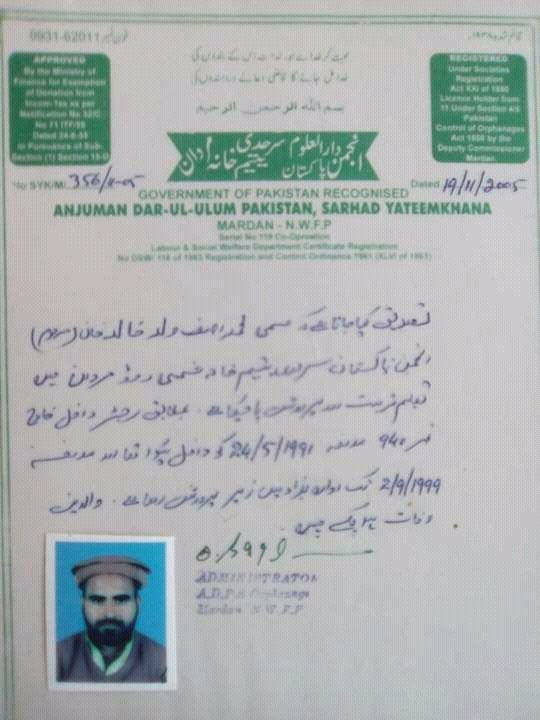 0931-62011 فون نمبر
قائم شدہ ۱۹۳۸ء
APPROVED
By the Ministry of
Finance for Exemption
of Donation from
Income-Tax as per
Notification No 32/C
No 71 ITF/55
Dated 24-6-55
In Pursuance of Sub-
Section (1) Section 15-D
بسم اللہ الرحمن الرحیم
REGISTERED
Under Societies
Registration
Act XXI of 1860
Licence Holder from
11 Under Section 4/5
Pakistan
Control of Orphanages
Act 1958 by the
Deputy Commissioner
Mardan.
انجمن دارالعلوم پاکستان سرحدی یتیم خانہ مردان
No SYK/M/ 356/11-05
Dated 19/11/2005
GOVERNMENT OF PAKISTAN RECOGNISED
ANJUMAN DAR-UL-ULUM PAKISTAN, SARHAD YATEEMKHANA
MARDAN - N.W.F.P
Serial No 119 Co-Opreation
Labour & Social Welfare Department Certificate Registration
No DSW/ 116 of 1963 Registration and Control Ordinance 1961 (XLVI of 1961)
تصدیق کیا جاتا ہے کہ مسمی محمد آصف ولد خالد خان (مرحوم)
انجمن پاکستان سرحد یتیم خانہ شمسی روڈ مردان میں
تعلیم تربیت اور پرورش پا چکا ہے۔ بمطابق رجسٹر داخل خارج
نمبر 940 مورخہ 24/5/1991 کو داخل ہوا تھا اور مورخہ
2/9/1999 تک ادارہ ہذا میں زیر پرورش رہا ہے۔ والدین
وفات پا چکے ہیں۔
ADMINISTRATOR
A.D.P.S Orphanage
Mardan N.W.F.P